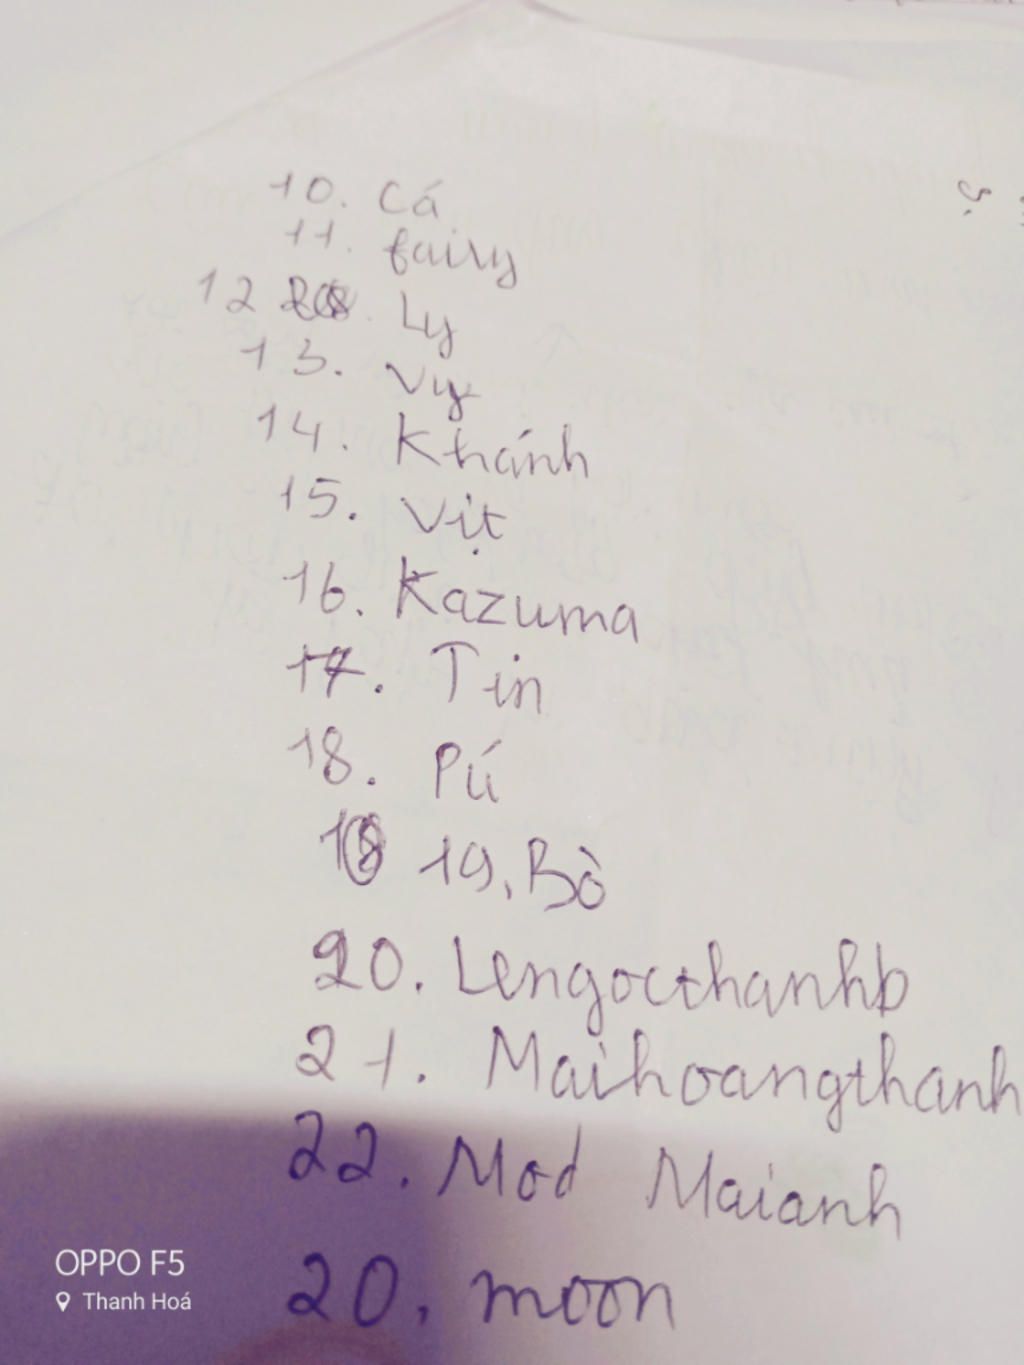 10. Cá
11. fairy
12 Ly
13. Vy
14. Khánh
15. Vịt
16. Kazuma
17. Tin
18. Pú
19. Bò
20. Lengocthanhb
21. Maihoangthanh
22. Mod Maianh
20. moon
OPPO F5
Thanh Hoá